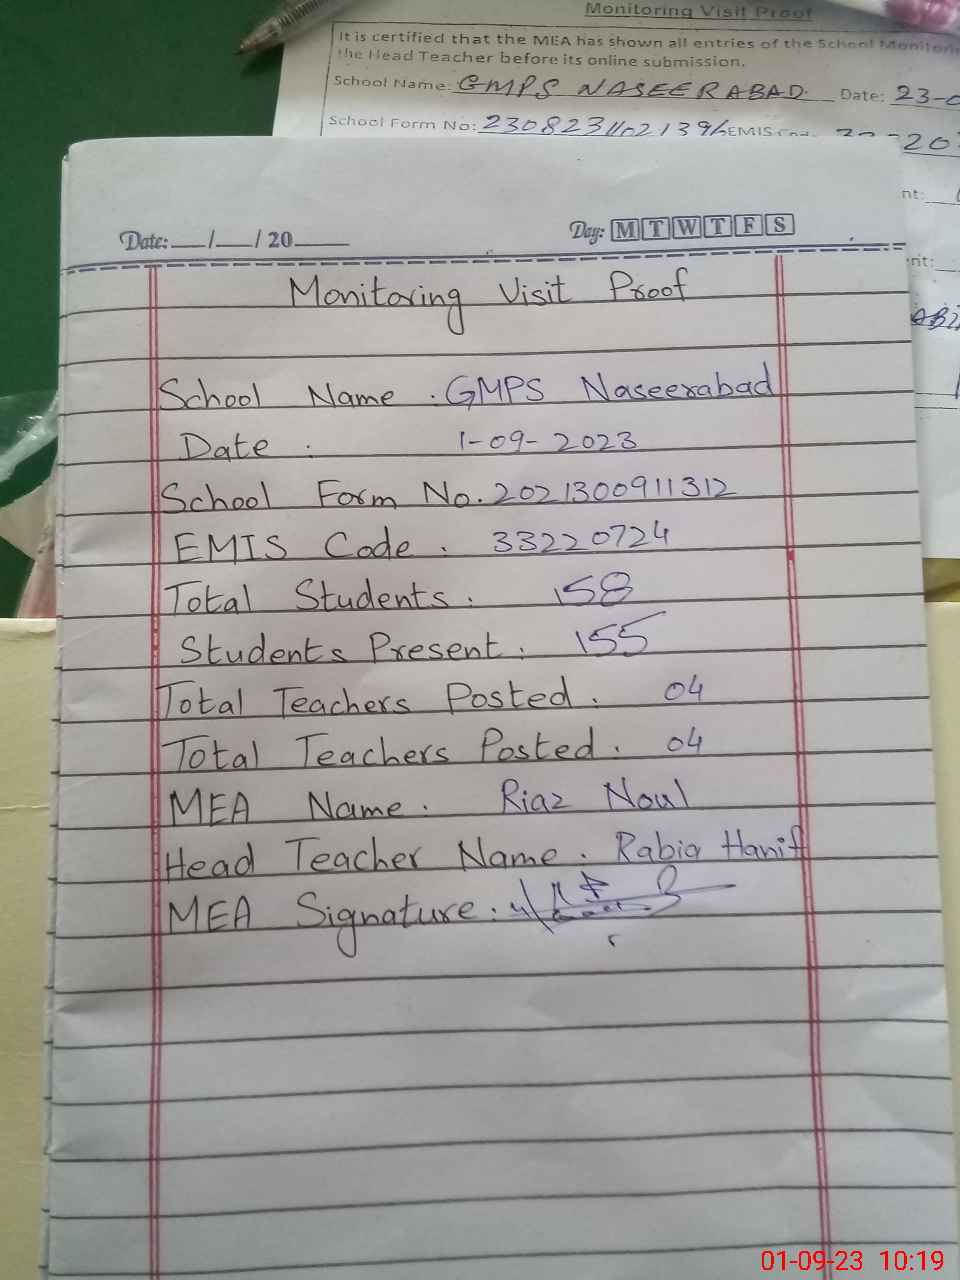 Monitoring Visit Proof
It is certified that the MEA has shown all entries of the School
the Head Teacher before its online submission.
School Name: GMPS NASEERABAD Date: 23-0
School Form No: 2308231102139
Date: __/__/20____ Day: M T W T F S
Monitoring Visit Proof
School Name : GMPS Naseerabad
Date : 1-09-2023
School Form No. 2021300911312
EMIS Code . 33220724
Total Students : 158
Students Present : 155
Total Teachers Posted . 04
Total Teachers Posted . 04
MEA Name . Riaz Noul
Head Teacher Name . Rabia Hanif
MEA Signature :
01-09-23 10:19